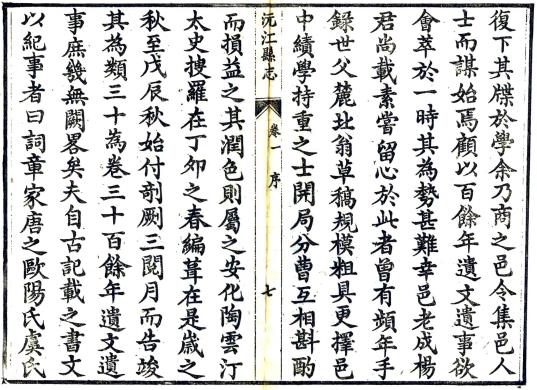 復下其牒於學余乃商之邑令集邑人
士而謀始焉顧以百餘年遺文遺事欲
會萃於一時其為勢甚難幸邑老成楊
君尚載素嘗留心於此者曾有頻年手
録世父麓北翁草稿規模粗具更擇邑
中績學持重之士開局分曹互相斟酌
沅江縣志
卷一
序
七
而損益之其潤色則屬之安化陶雲汀
太史搜羅在丁卯之春編葺在是嵗之
秋至戊辰秋始付剞劂三閱月而告竣
其為類三十為卷三十百餘年遺文遺
事庶幾無闕畧矣夫自古記載之書文
以紀事者曰詞章家唐之歐陽氏虞氏